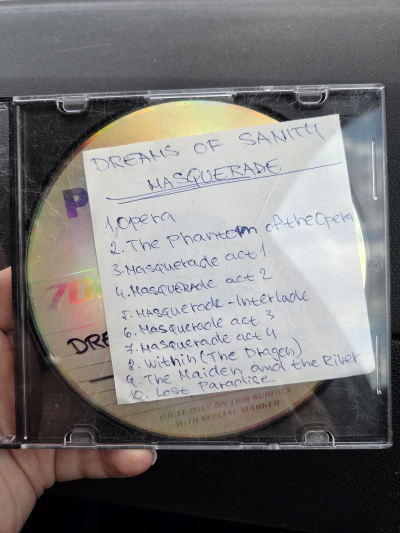 DREAMS OF SANITY
MASQUERADE
1. Opera
2. The Phantom of the Opera
3. Masquerade act 1
4. MASQUERADE act 2
5. MASQUERADE - Interlude
6. Masquerade act 3
7. Masquerade act 4
8. Within (The Dragon)
9. The Maiden and the River
10. Lost Paradise
P
70
DRE
WRITE ONLY ON THIS SURFACE
WITH SPECIAL MARKER